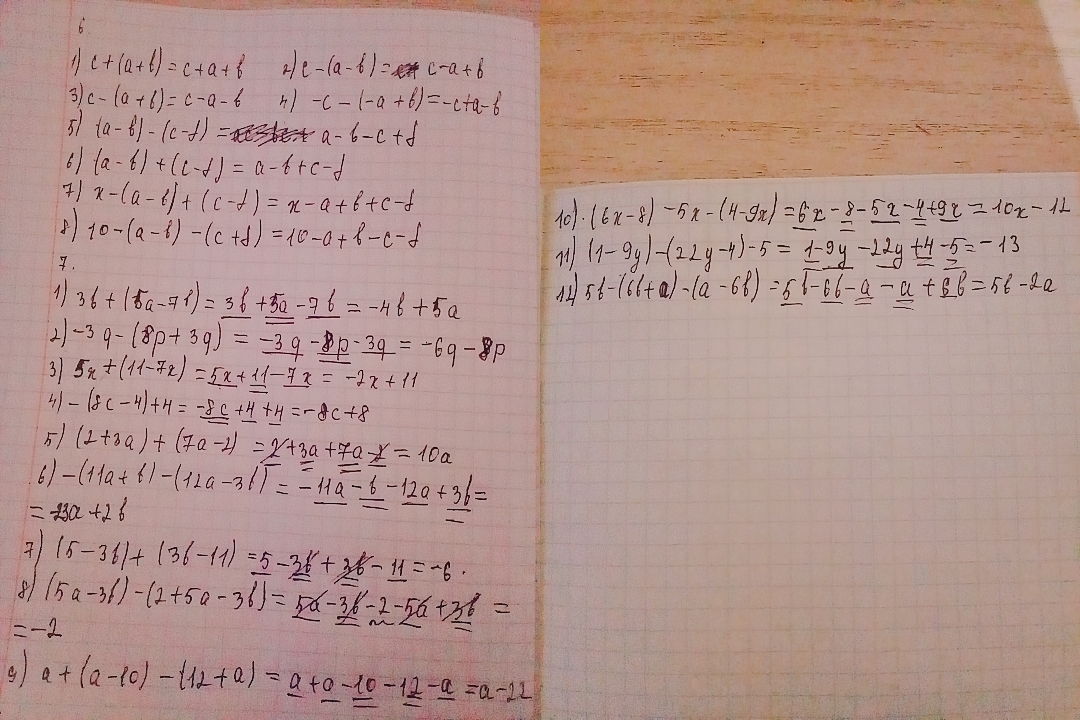 6
1) c+(a+b)=c+a+b 2) c-(a-b)= c-a+b
3) c-(a+b)=c-a-b 4) -c-(-a+b)=-c+a-b
5) (a-b)-(c-d)= a-b-c+d
6) (a-b)+(c-d)=a-b+c-d
7) x-(a-b)+(c-d)=x-a+b+c-d
8) 10-(a-b)-(c+d)=10-a+b-c-d
7.
1) 3b+(5a-7b)=3b+5a-7b=-4b+5a
2) -3q-(8p+3q)=-3q-8p-3q=-6q-8p
3) 5x+(11-7x)=5x+11-7x=-2x+11
4) -(8c-4)+4=-8c+4+4=-8c+8
5) (2+3a)+(7a-2)=2+3a+7a-2=10a
6) -(11a+b)-(12a-3b)=-11a-b-12a+3b=
=-23a+2b
7) (5-3b)+(3b-11)=5-3b+3b-11=-6.
8) (5a-3b)-(2+5a-3b)=5a-3b-2-5a+3b=
=-2
9) a+(a-10)-(12+a)=a+a-10-12-a=a-22
10).(6x-8)-5x-(4-9x)=6x-8-5x-4+9x=10x-12
11) (1-9y)-(22y-4)-5=1-9y-22y+4-5=-13
12) 5b-(6b+a)-(a-6b)=5b-6b-a-a+6b=5b-2a